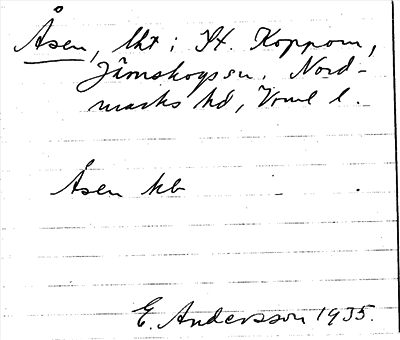 Åsen, lht i St. Koppom,
Järnskogs sn, Nord-
marks hd, Vrml l.
Åsen kb
E. Andersson 1935.